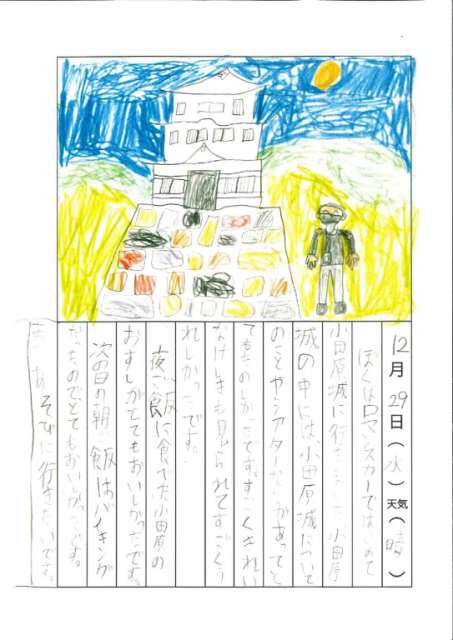 12月29日(火)天気(晴)
ぼくはロマンスカーではじめて
小田原城に行きました。小田原
城の中には小田原城について
のことやシアターなどがあってと
てもたのしかったです。すごくきれい
なけしきも見られてすごくう
れしかったです。
夜ご飯に食べた小田原の
おすしがとてもおいしかったです。
次の日の朝ご飯はバイキング
だったのでとてもおいしかったです。
またあそびに行きたいです。